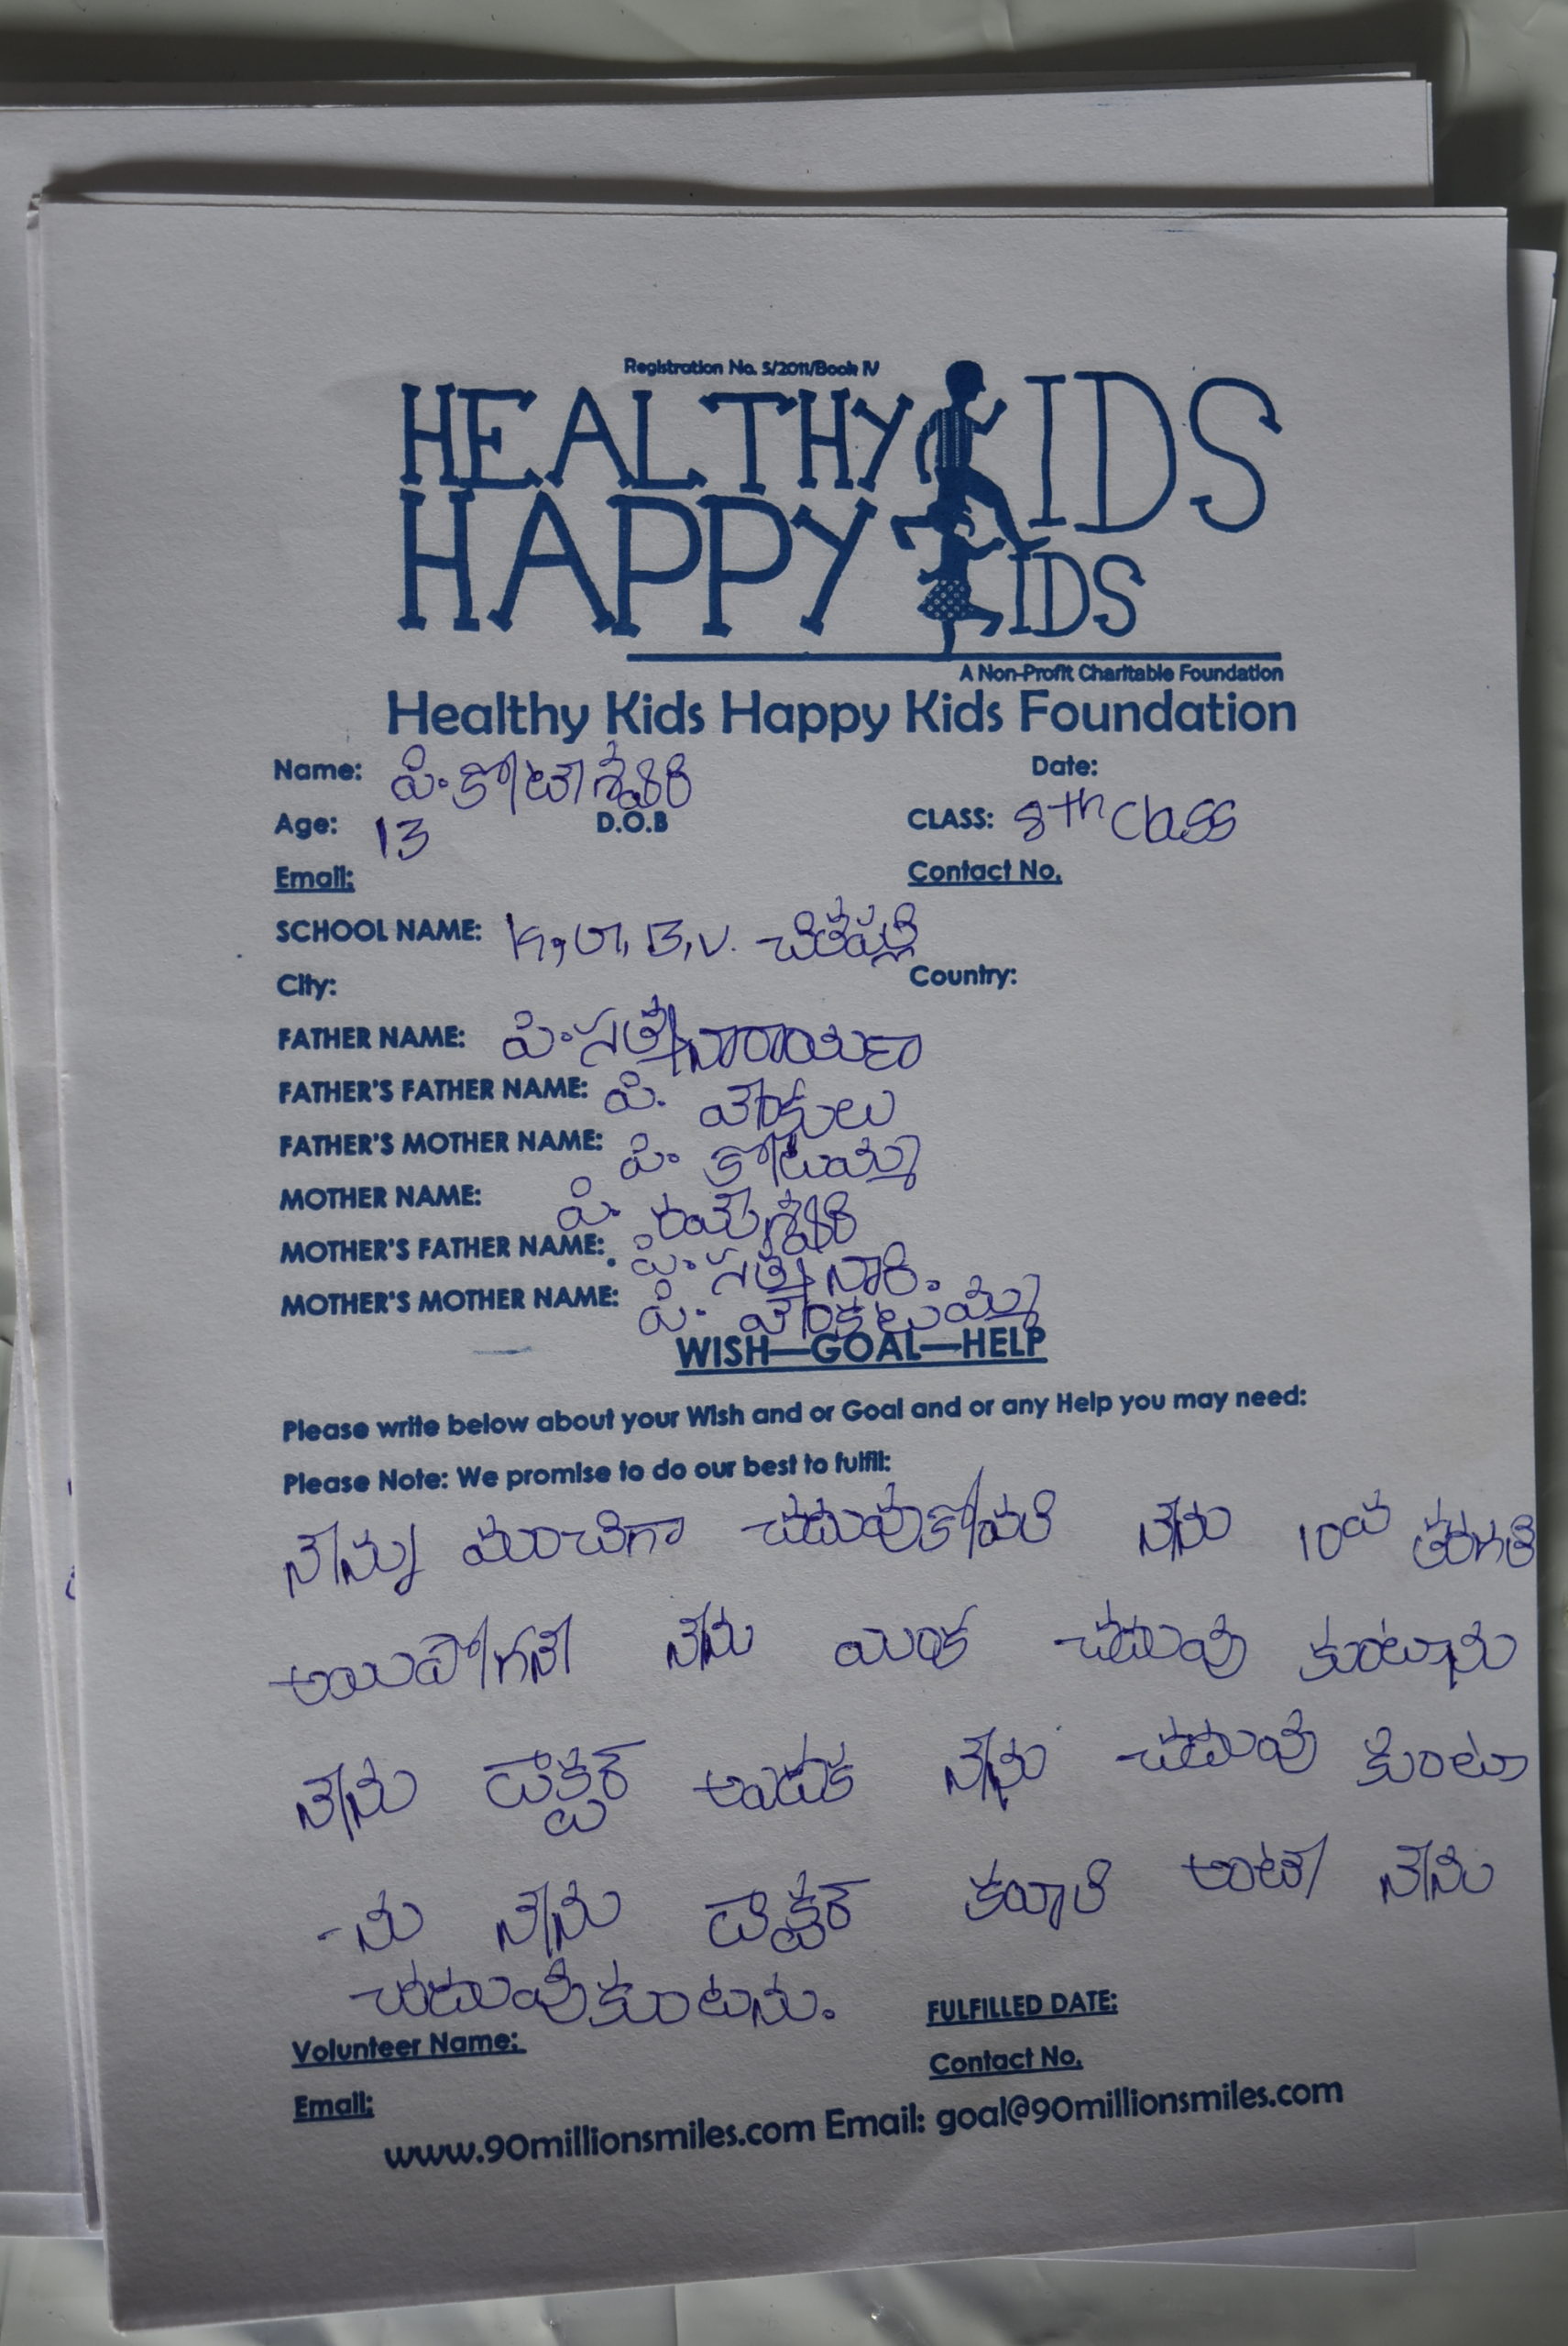 Registration No. 5/2011/Book IV
HEALTHY KIDS
HAPPY KIDS
A Non-Profit Charitable Foundation
Healthy Kids Happy Kids Foundation
Name: పి. కోటేశ్వరి Date:
Age: 13 D.O.B CLASS: 8th Class
Email: Contact No.
SCHOOL NAME: K, G, B, V. చింతపల్లి
City: Country:
FATHER NAME: పి. సత్యనారాయణ
FATHER'S FATHER NAME: పి.
FATHER'S MOTHER NAME: పి. కోటమ్మ
MOTHER NAME: పి.
MOTHER'S FATHER NAME: పి. సత్యనారి.
MOTHER'S MOTHER NAME: పి. వెంకటమ్మ
WISH—GOAL—HELP
Please write below about your Wish and or Goal and or any Help you may need:
Please Note: We promise to do our best to fulfil:
నేను మంచిగా చదువుకోవలి నేను 10వ తరగతి
అయిపోగనే నేను యింక చదువు కుంటాను
నేను డాక్టర్ నేను చదువు కుంటా
-ను నేను డాక్టర్ కవాలి అంటే నేను
చదువుకుంటను.
FULFILLED DATE:
Volunteer Name:
Contact No.
Email:
www.90millionsmiles.com Email: goal@90millionsmiles.com